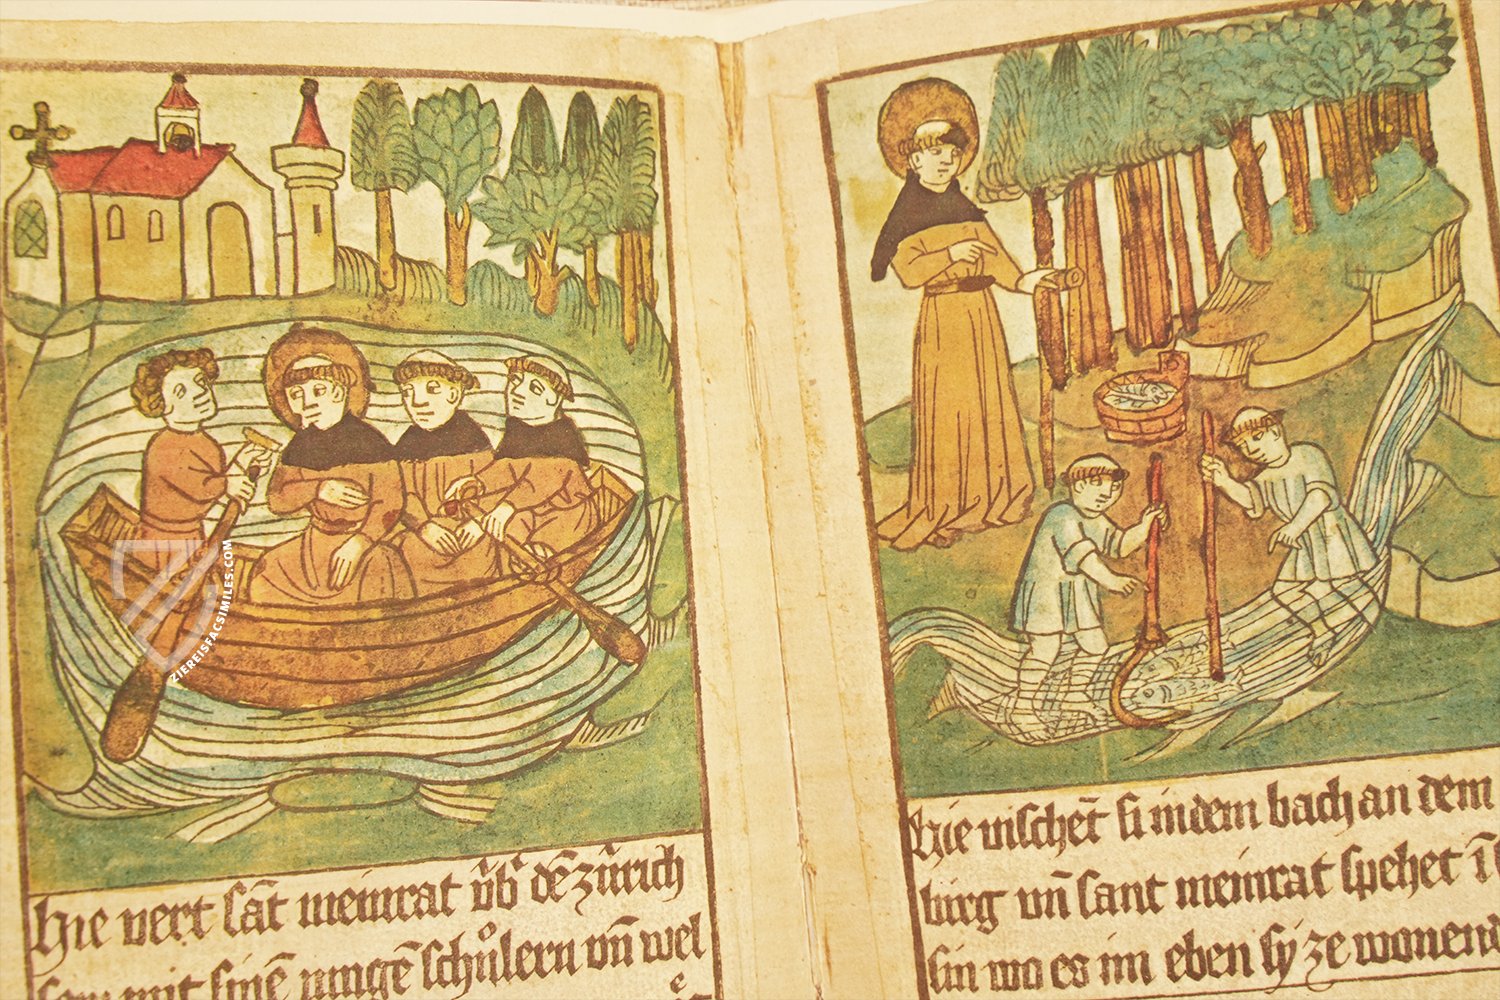 hie vert sāt meinrat v̄b' dē zürich
sew mit sinē iungē schůlern vn̄ wel
hie vischēt si in dem bach an dem
birg vn̄ sant meinrat spehet ī
sin wo es im eben sy ze wonend
ZIEREISFACSIMILES.COM